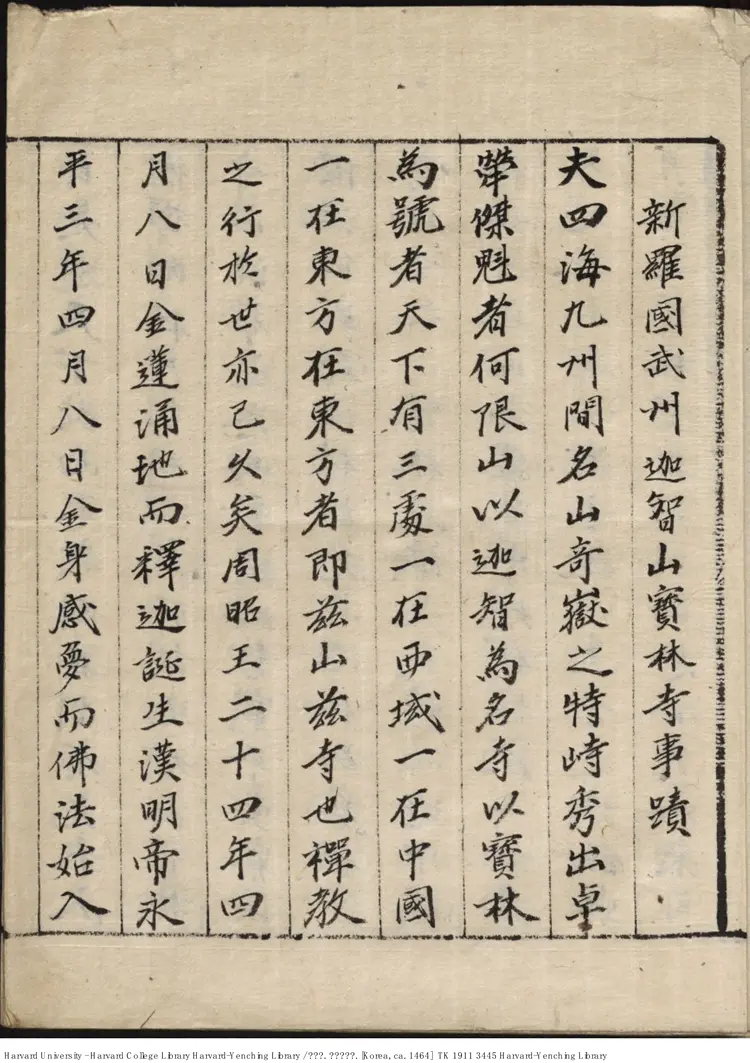 新羅國武州迦智山寶林寺事蹟
夫四海九州間名山奇嶽之特峙秀出卓
犖傑魁者何限山以迦智為名寺以寶林
為號者天下有三處一在西域一在中國
一在東方在東方者即茲山茲寺也禪教
之行於世亦已久矣周昭王二十四年四
月八日金蓮涌地而釋迦誕生漢明帝永
平三年四月八日金身感夢而佛法始入
Harvard University - Harvard College Library Harvard-Yenching Library / ???. ?????. [Korea, ca. 1464] TK 1911 3445 Harvard-Yenching Library